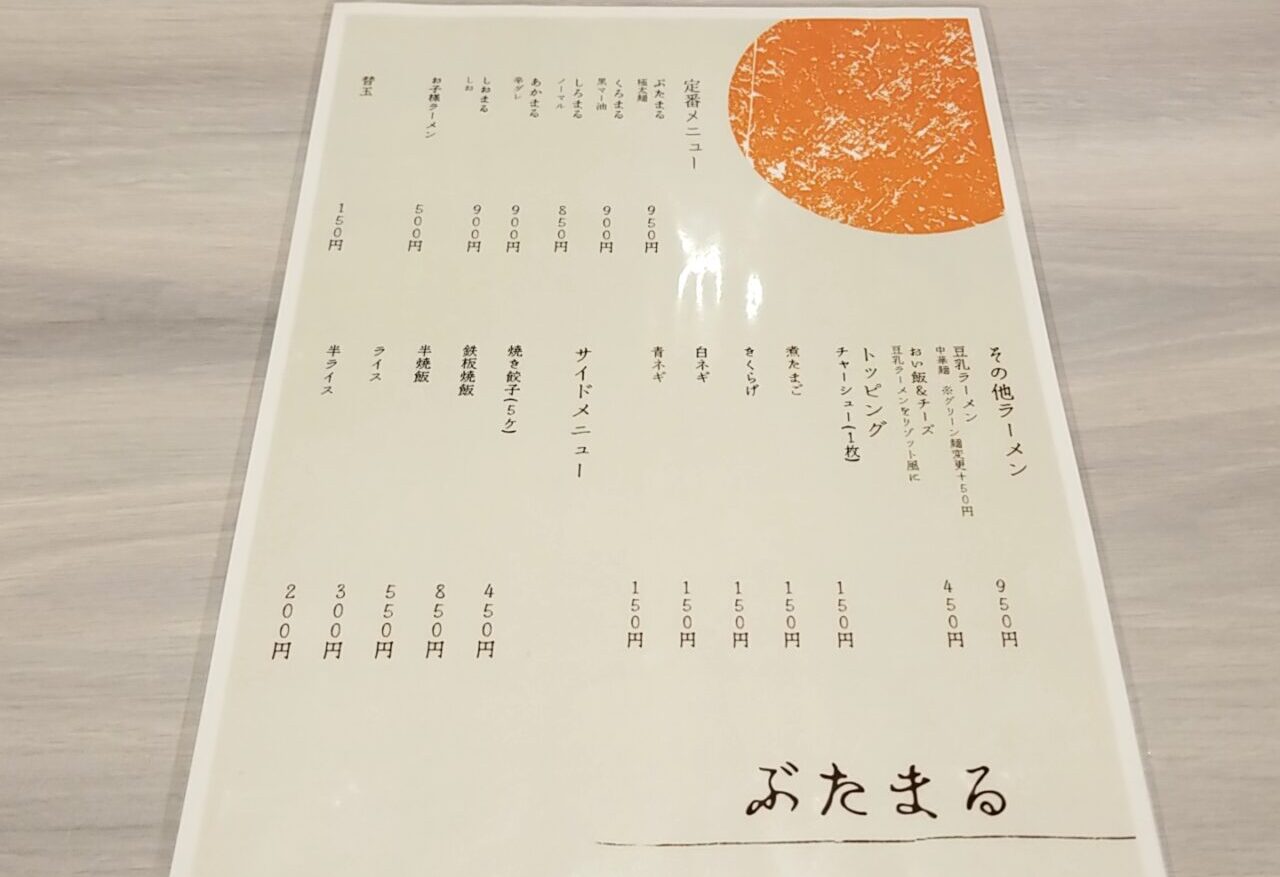 定番メニュー
ぶたまる 950円
極太麺
くろまる 900円
黒マー油
しろまる 850円
ノーマル
あかまる 900円
辛ダレ
しおまる 900円
しお
お子様ラーメン 500円
替玉 150円
その他ラーメン
豆乳ラーメン 950円
中華麺 ※グリーン麺変更+50円
おい飯&チーズ 450円
豆乳ラーメンをリゾット風に
トッピング
チャーシュー(1枚) 150円
煮たまご 150円
きくらげ 150円
白ネギ 150円
青ネギ 150円
サイドメニュー
焼き餃子(5ケ) 450円
鉄板焼飯 850円
半焼飯 550円
ライス 300円
半ライス 200円
ぶたまる